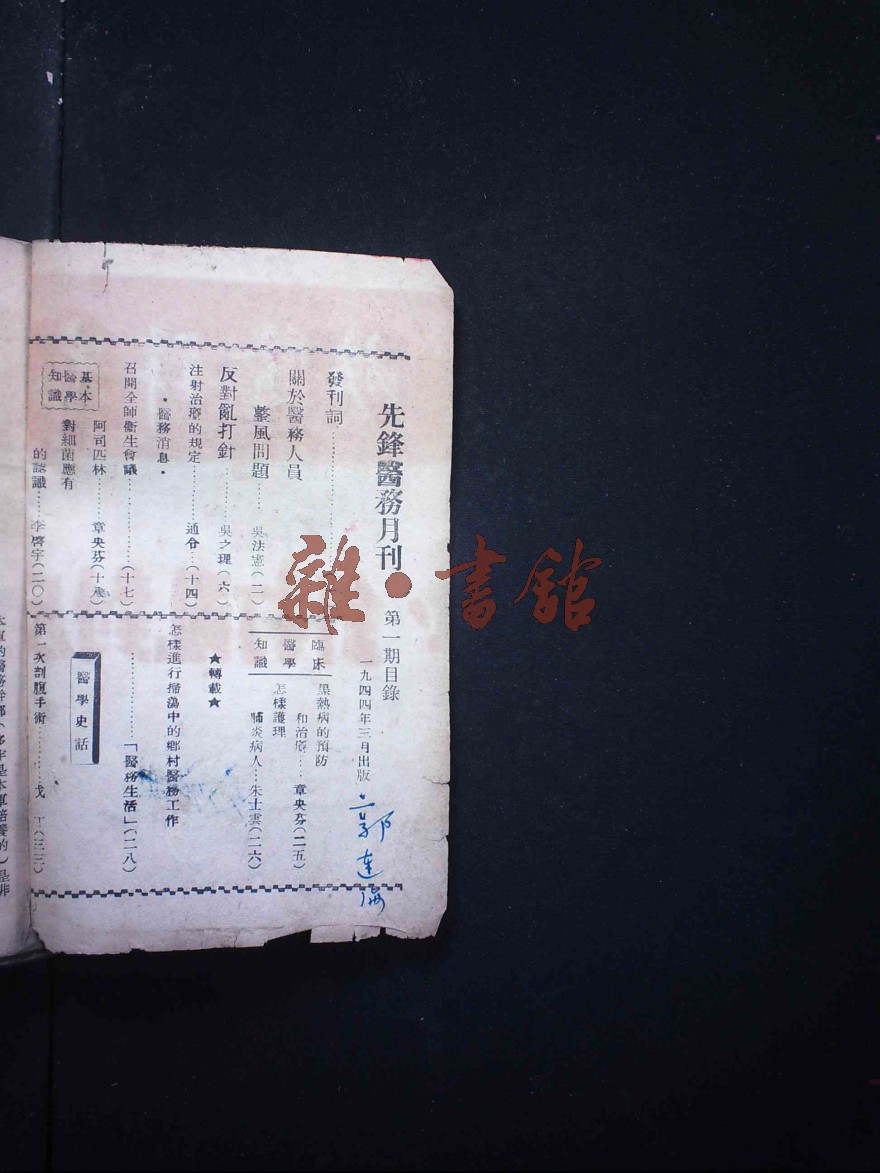 先鋒醫務月刊 第一期目錄
一九四四年三月出版
發刊詞
關於醫務人員
整風問題……吳法憲(二)
反對亂打針………吳之理(六)
注射治療的規定………通令…(十四)
·醫務消息·
召開全師衛生會議………(十七)
基本
醫學
知識
阿司匹林……章央芬(十八)
對細菌應有
的認識……李啓宇(二〇)
臨床
醫學
知識
黑熱病的預防
和治療……章央芬(二五)
怎樣護理
肺炎病人…朱士雲(二六)
★轉載★
怎樣進行掃蕩中的鄉村醫務工作
………「醫務生活」(二八)
醫學史話
第一次剖腹手術………戈 丁(三三)
雜·書館